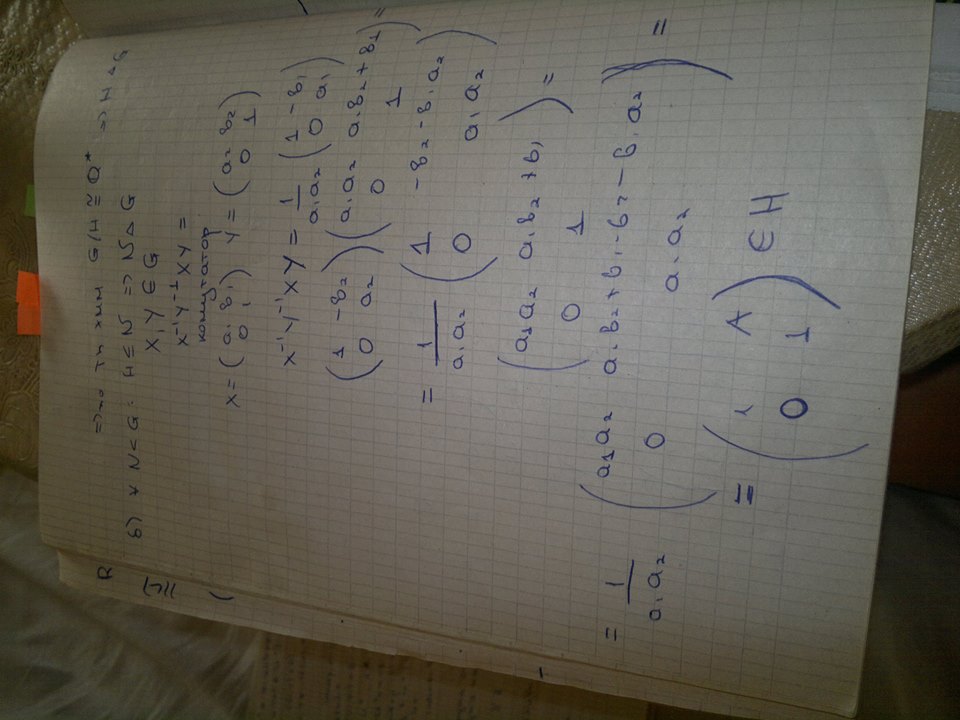 => по Th хмм G/H ≅ Q* => H ◁ G
б) ∀ N < G: H ≤ N => N ◁ G
X, Y ∈ G
X⁻¹Y⁻¹XY =
комутатор
X = ( a₁ b₁ ) Y = ( a₂ b₂ )
0 1 0 1
X⁻¹Y⁻¹XY = 1/a₁a₂ ( 1 -b₁ )
0 a₁
( 1 -b₂ ) ( a₁a₂ a₁b₂+b₁ ) =
0 a₂ 0 1
= 1/a₁a₂ ( 1 -b₂-b₁a₂ )
0 a₁a₂
( a₁a₂ a₁b₂+b₁ ) =
0 1
= 1/a₁a₂ ( a₁a₂ a₁b₂+b₁-b₂-b₁a₂ ) =
0 a₁a₂
= ( 1 A ) ∈ H
0 1